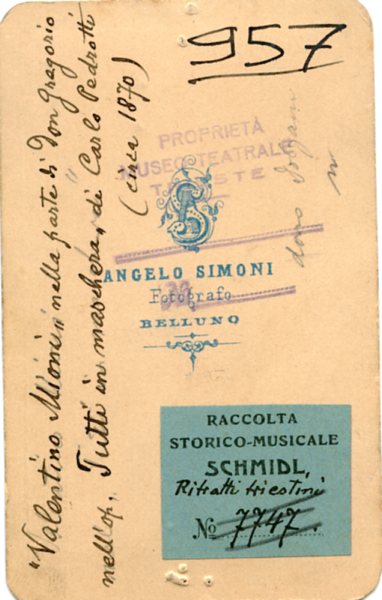 957
"Valentino Mioni" nella parte di Don Gregorio
nell'op. "Tutti in maschera" di Carlo Pedrotti
(circa 1870)
PROPRIETÀ
MUSEO TEATRALE
TRIESTE
dono
S
ANGELO SIMONI
Fotografo
BELLUNO
RACCOLTA
STORICO-MUSICALE
SCHMIDL
Ritratti triestini
No 7747.